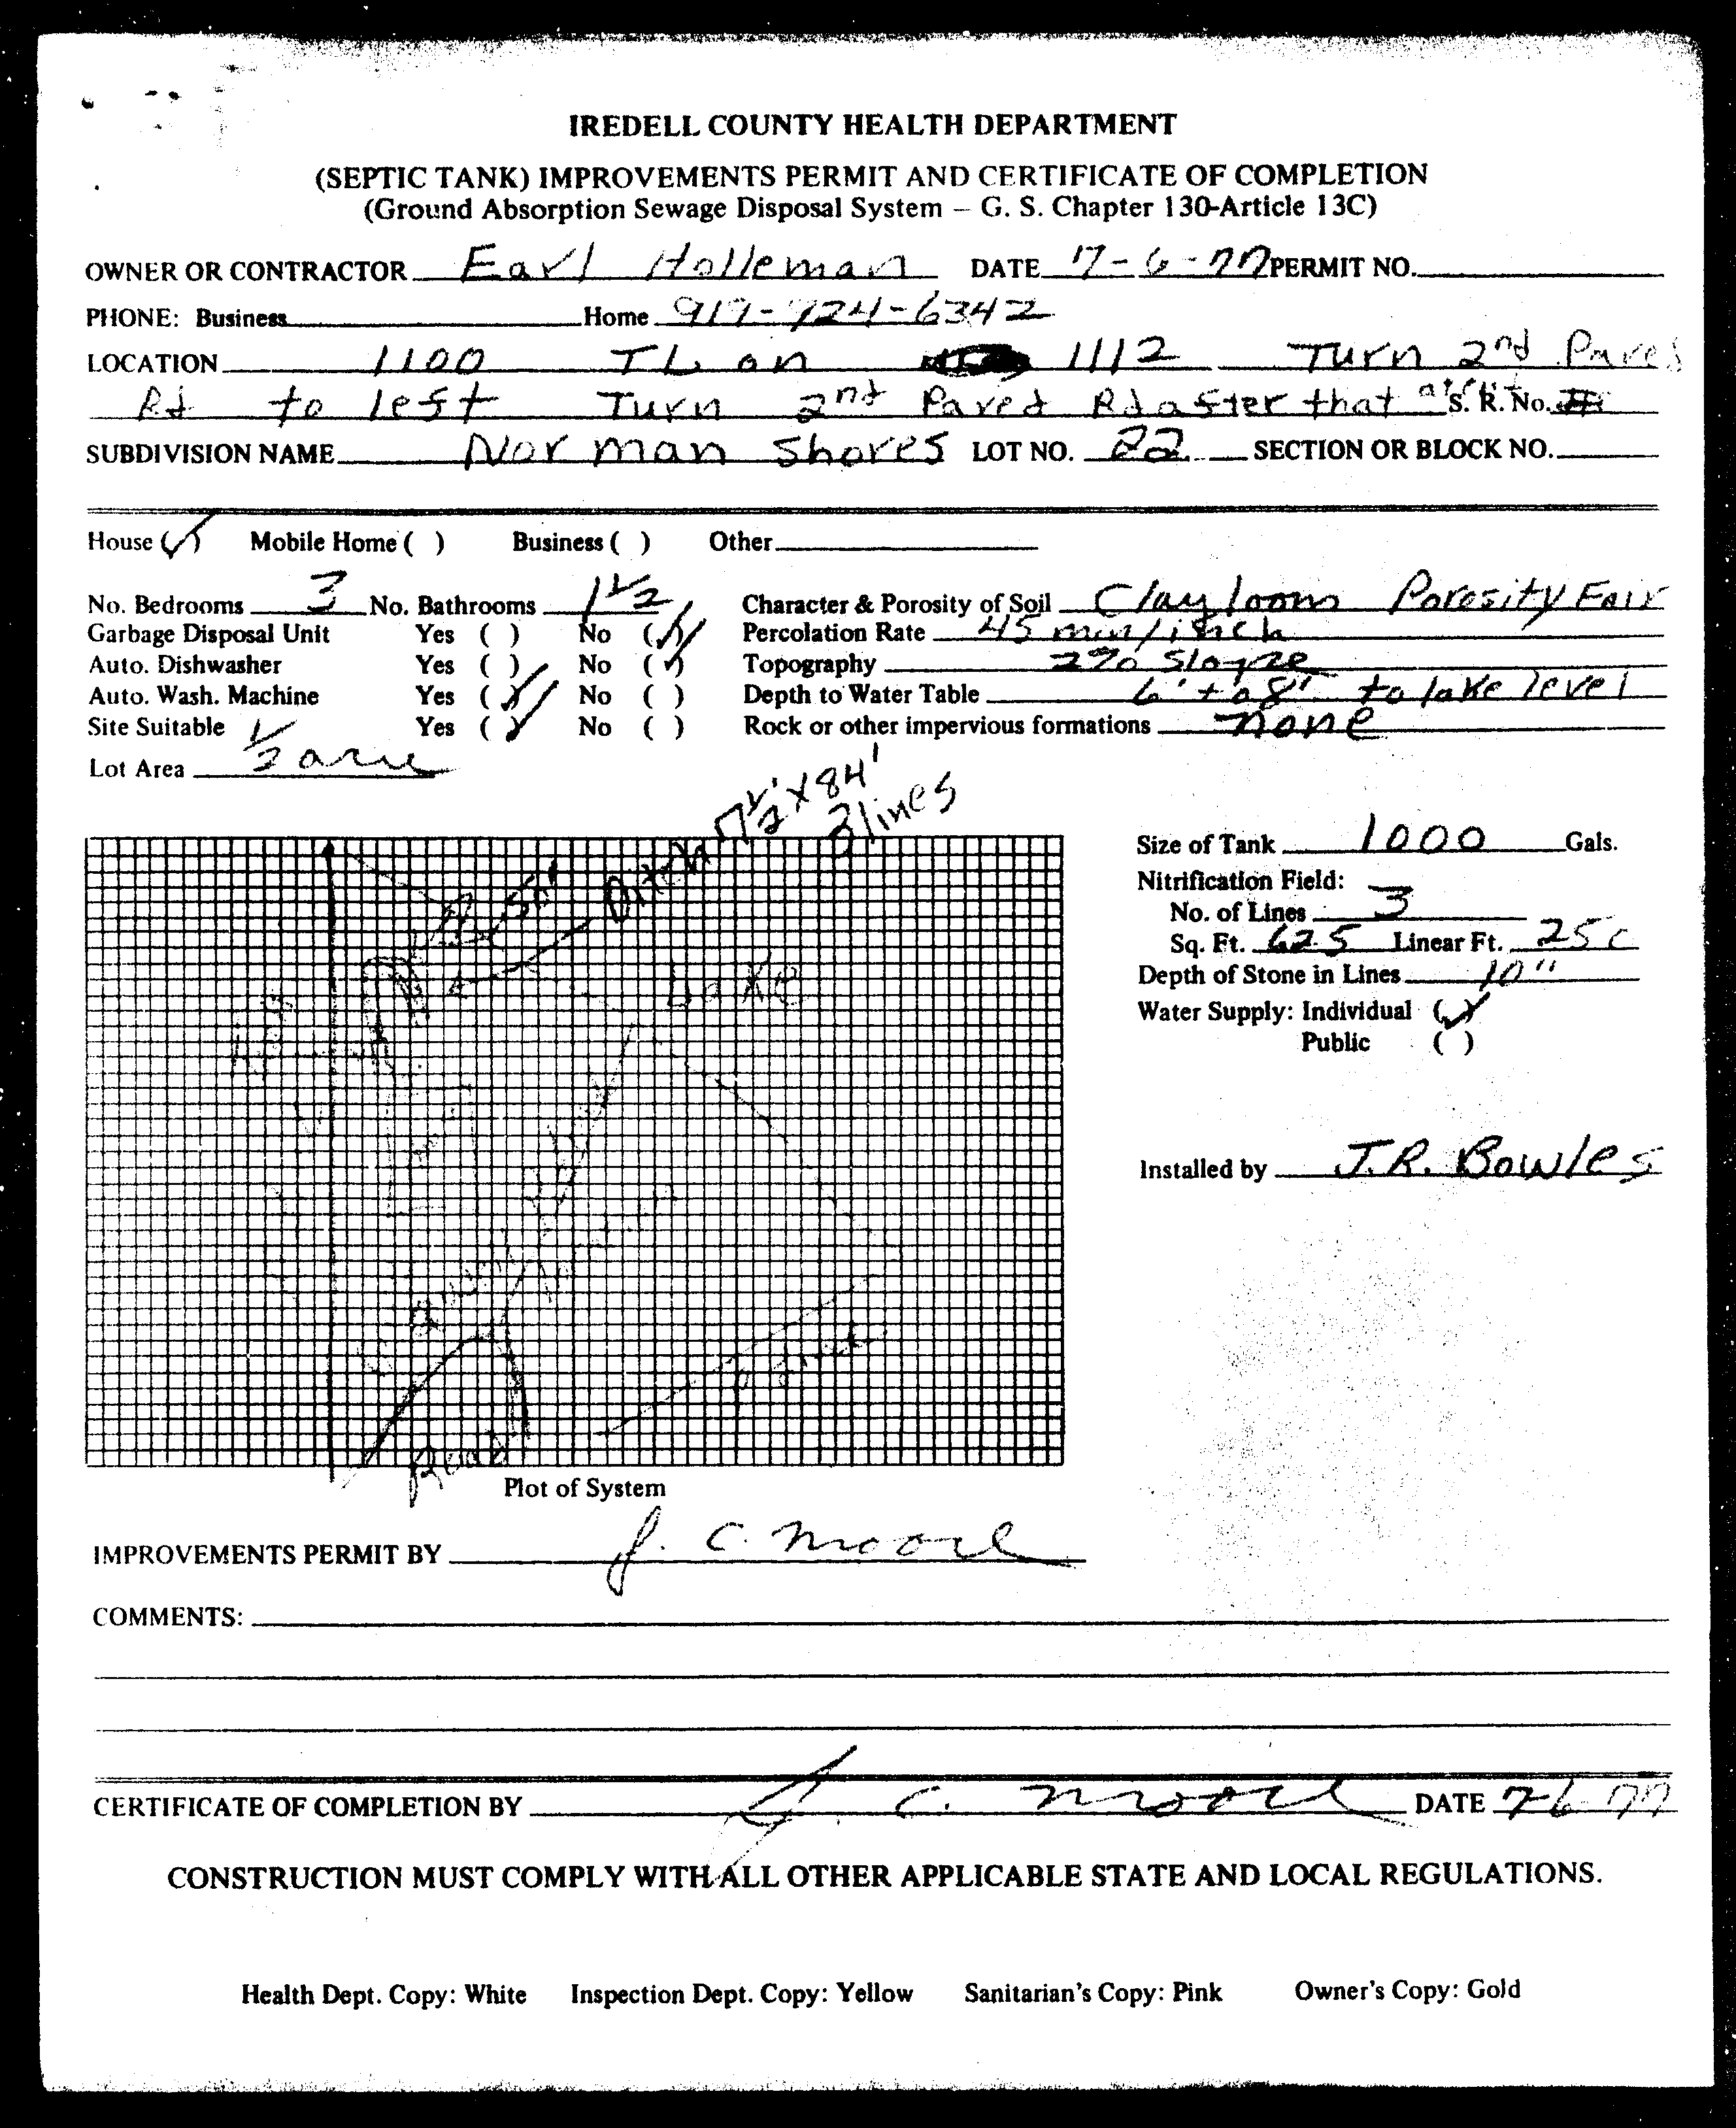 IREDELL COUNTY HEALTH DEPARTMENT
(SEPTIC TANK) IMPROVEMENTS PERMIT AND CERTIFICATE OF COMPLETION
(Ground Absorption Sewage Disposal System – G. S. Chapter 130-Article 13C)
OWNER OR CONTRACTOR Earl Holleman DATE 7-6-77 PERMIT NO.
PHONE: Business Home 919-724-6342
LOCATION 1100 TL on 1112 Turn 2nd Paved
Rd to left Turn 2nd Paved Rd after that S. R. No.
SUBDIVISION NAME Norman Shores LOT NO. 22 SECTION OR BLOCK NO.
House (✓) Mobile Home ( ) Business ( ) Other
No. Bedrooms 3 No. Bathrooms 1 1/2 Character & Porosity of Soil Clay loom Porosity Fair
Garbage Disposal Unit Yes ( ) No (✓) Percolation Rate 45 min/inch
Auto. Dishwasher Yes ( ) No (✓) Topography 2% Slope
Auto. Wash. Machine Yes (✓) No ( ) Depth to Water Table 6' to 8' to lake level
Site Suitable Yes (✓) No ( ) Rock or other impervious formations none
Lot Area 1/2 acre
Ditch 7 1/2' x 84'
3 lines
50'
Lake
Road
Plot of System
Size of Tank 1000 Gals.
Nitrification Field:
No. of Lines 3
Sq. Ft. 625 Linear Ft. 250
Depth of Stone in Lines 10"
Water Supply: Individual (✓)
Public ( )
Installed by J.R. Bowles
IMPROVEMENTS PERMIT BY J. C. Moore
COMMENTS:
CERTIFICATE OF COMPLETION BY J. C. Moore DATE 7-6-77
CONSTRUCTION MUST COMPLY WITH ALL OTHER APPLICABLE STATE AND LOCAL REGULATIONS.
Health Dept. Copy: White Inspection Dept. Copy: Yellow Sanitarian's Copy: Pink Owner's Copy: Gold